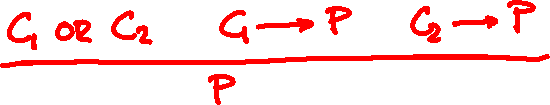 C₁ OR C₂ C₁ → P C₂ → P
P